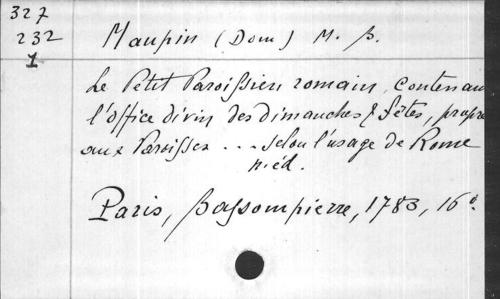 327
232
1
Maupin (Dom) M. B.
Le Petit Paroissien romain, contenan
l'office divin des dimanches & fêtes, propre
aux Paroisses . . . selon l'usage de Rome
n. éd.
Paris, Bassompierre, 1783, 16°.